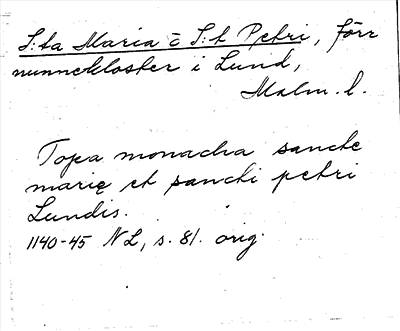 S:ta Maria o S:t Petri, förr
nunnekloster i Lund,
Malm. l.
Topa monacha sancte
marię et sancti petri
Lundis.
1140-45 NL, s. 81. orig.